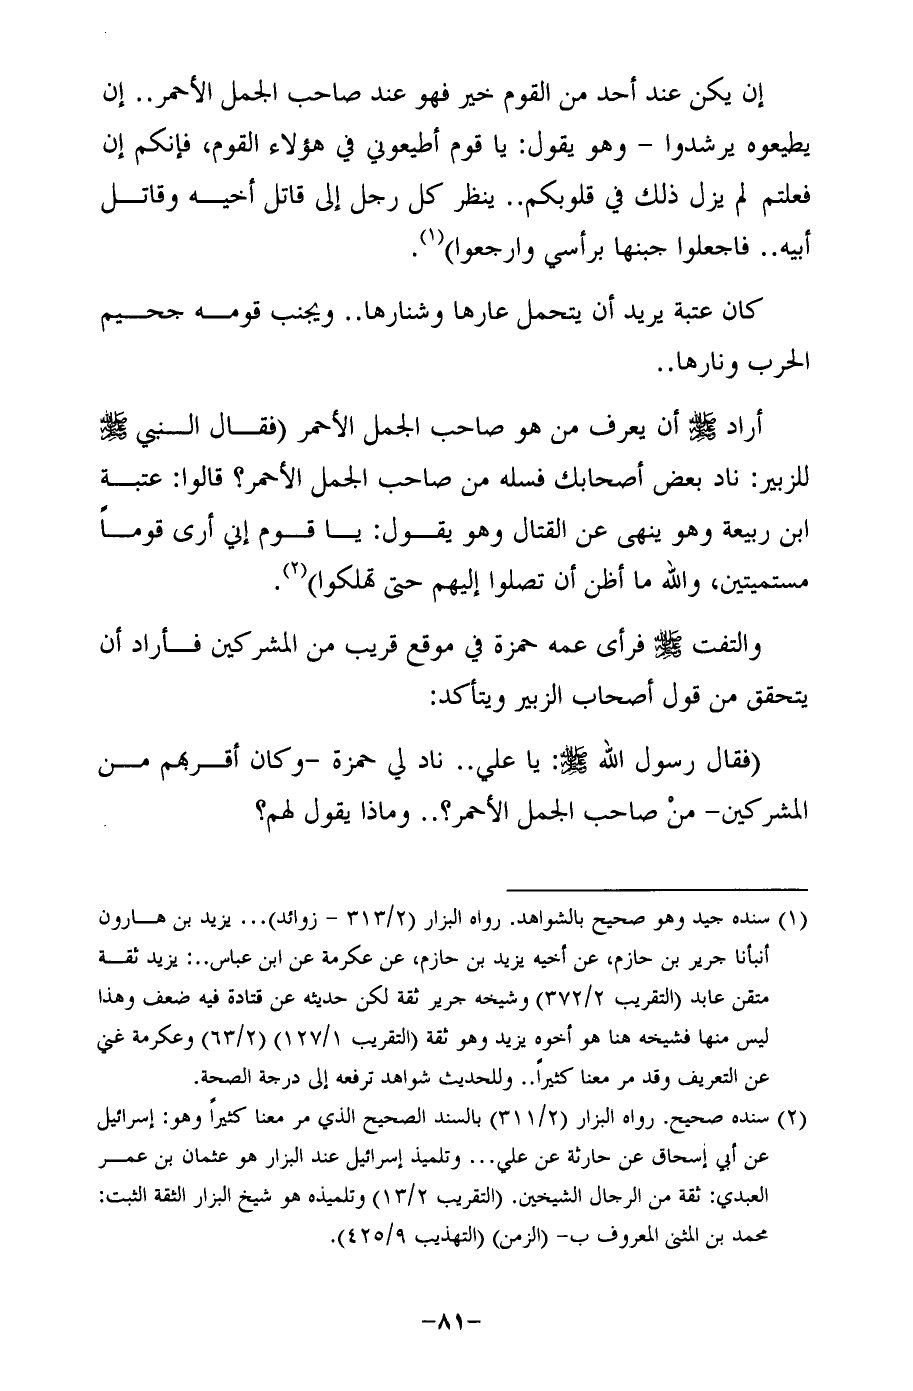 إن يكن عند أحد من القوم خير فهو عند صاحب الجمل الأحمر.. إن
يطيعوه يرشدوا – وهو يقول: يا قوم أطيعوني في هؤلاء القوم، فإنكم إن
فعلتم لم يزل ذلك في قلوبكم.. ينظر كل رجل إلى قاتل أخيه وقاتل
أبيه.. فاجعلوا جبنها برأسي وارجعوا)(١).
كان عتبة يريد أن يتحمل عارها وشنارها.. ويجنب قومه جحيم
الحرب ونارها..
أراد ﷺ أن يعرف من هو صاحب الجمل الأحمر (فقال النبي ﷺ
للزبير: ناد بعض أصحابك فسله من صاحب الجمل الأحمر؟ قالوا: عتبة
ابن ربيعة وهو ينهى عن القتال وهو يقول: يا قوم إني أرى قوماً
مستميتين، والله ما أظن أن تصلوا إليهم حتى تهلكوا)(٢).
والتفت ﷺ فرأى عمه حمزة في موقع قريب من المشركين فأراد أن
يتحقق من قول أصحاب الزبير ويتأكد:
(فقال رسول الله ﷺ: يا علي.. ناد لي حمزة –وكان أقربهم من
المشركين– منْ صاحب الجمل الأحمر؟.. وماذا يقول لهم؟
(١) سنده جيد وهو صحيح بالشواهد. رواه البزار (٣١٣/٢ – زوائد)... يزيد بن هارون
أنبأنا جرير بن حازم، عن أخيه يزيد بن حازم، عن عكرمة عن ابن عباس..: يزيد ثقة
متقن عابد (التقريب ٣٧٢/٢) وشيخه جرير ثقة لكن حديثه عن قتادة فيه ضعف وهذا
ليس منها فشيخه هنا هو أخوه يزيد وهو ثقة (التقريب ١٢٧/١) (٦٣/٢) وعكرمة غني
عن التعريف وقد مر معنا كثيراً.. وللحديث شواهد ترفعه إلى درجة الصحة.
(٢) سنده صحيح. رواه البزار (٣١١/٢) بالسند الصحيح الذي مر معنا كثيراً وهو: إسرائيل
عن أبي إسحاق عن حارثة عن علي... وتلميذ إسرائيل عند البزار هو عثمان بن عمر
العبدي: ثقة من الرجال الشيخين. (التقريب ١٣/٢) وتلميذه هو شيخ البزار الثقة الثبت:
محمد بن المثنى المعروف ب– (الزمن) (التهذيب ٤٢٥/٩).
–٨١–